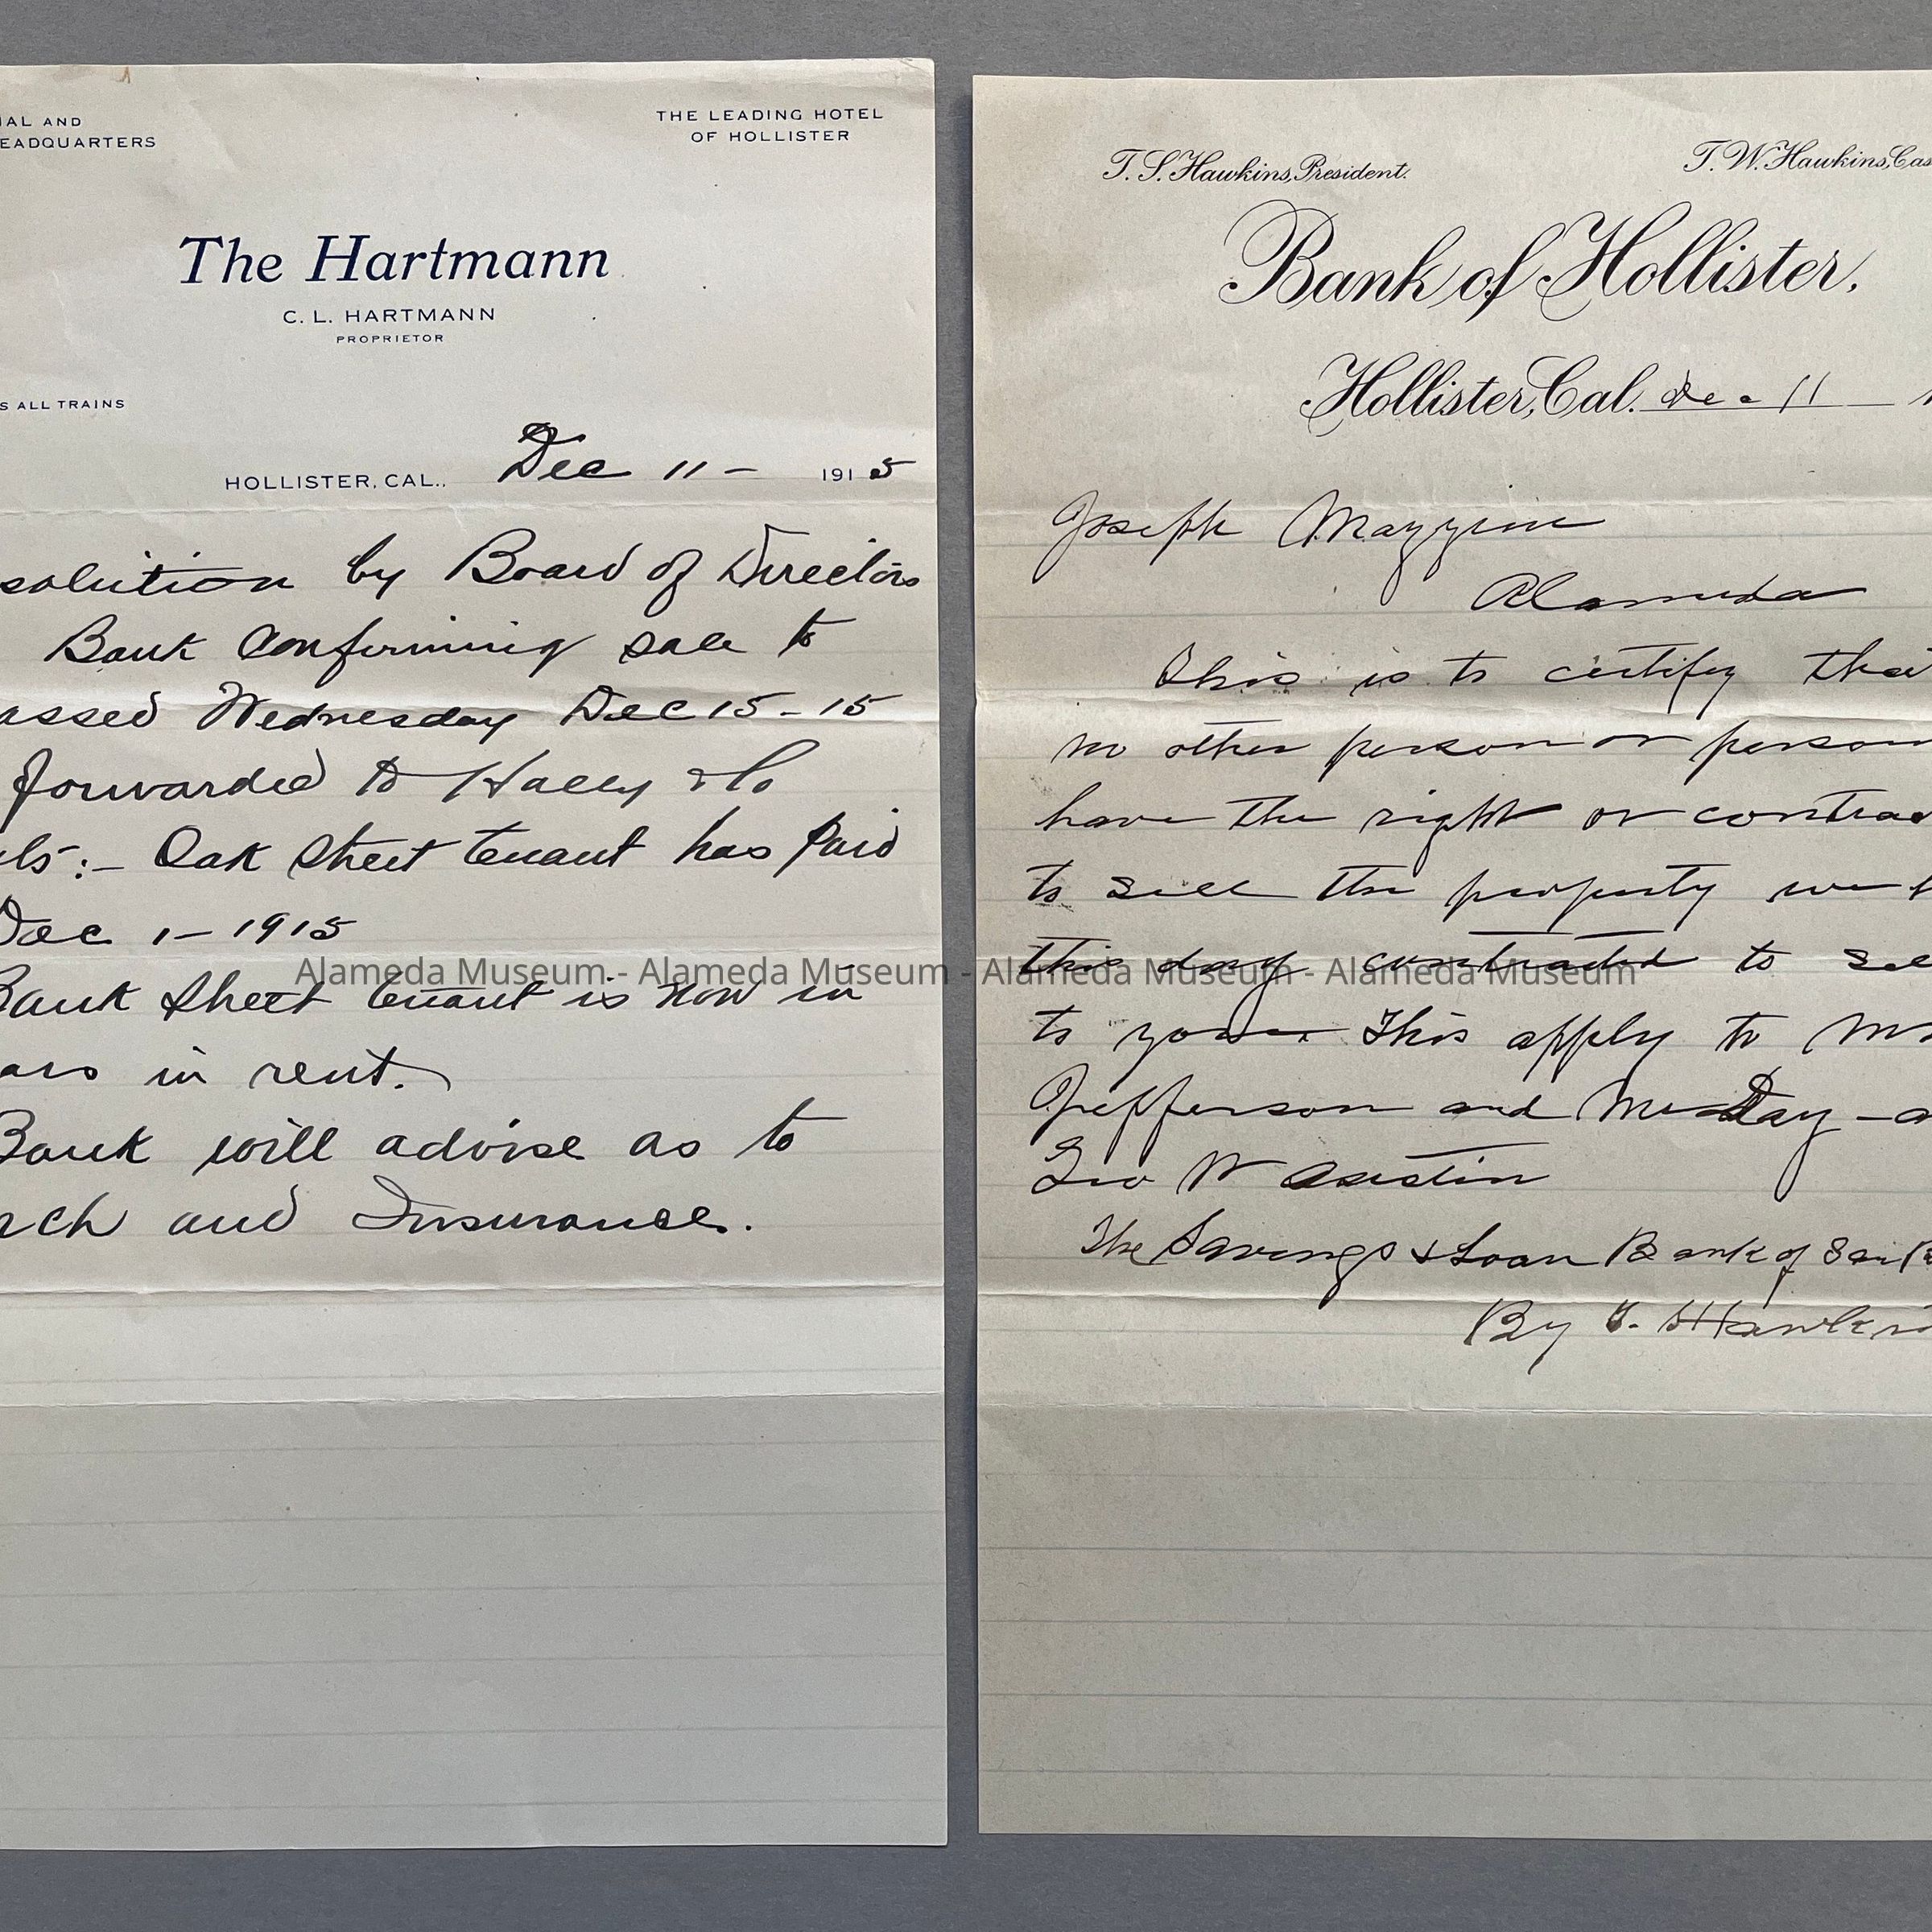 IAL AND
EADQUARTERS
THE LEADING HOTEL
OF HOLLISTER
The Hartmann
C. L. HARTMANN
PROPRIETOR
S ALL TRAINS
HOLLISTER, CAL., Dec 11 - 1915
solution by Board of Directors
Bank Confirming sale to
assed Wednesday Dec 15 - 15
forwarded to Hally & Co
ls:- Oak Street tenant has paid
Dec 1 - 1915
Bank Street tenant is now in
ars in rent.
Bank will advise as to
rch and Insurance.
T. S. Hawkins, President.
T. W. Hawkins, Cas
Bank of Hollister,
Hollister, Cal. Dec 11
Joseph Mazzini
Alameda
This is to certify that
no other person or person
have the right or contrac
to sell the property we h
this day contracted to sel
to you. This apply to Mr
Jefferson and Mr Day - a
Geo W Austin
The Savings & Loan Bank of San B
By T. S Hawkin
Alameda Museum - Alameda Museum - Alameda Museum - Alameda Museum